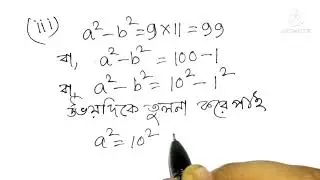 (iii) a²-b²=9×11=99
বা, a²-b²=100-1
বা, a²-b²=10²-1²
উভয়দিকে তুলনা করে পাই
a²=10²